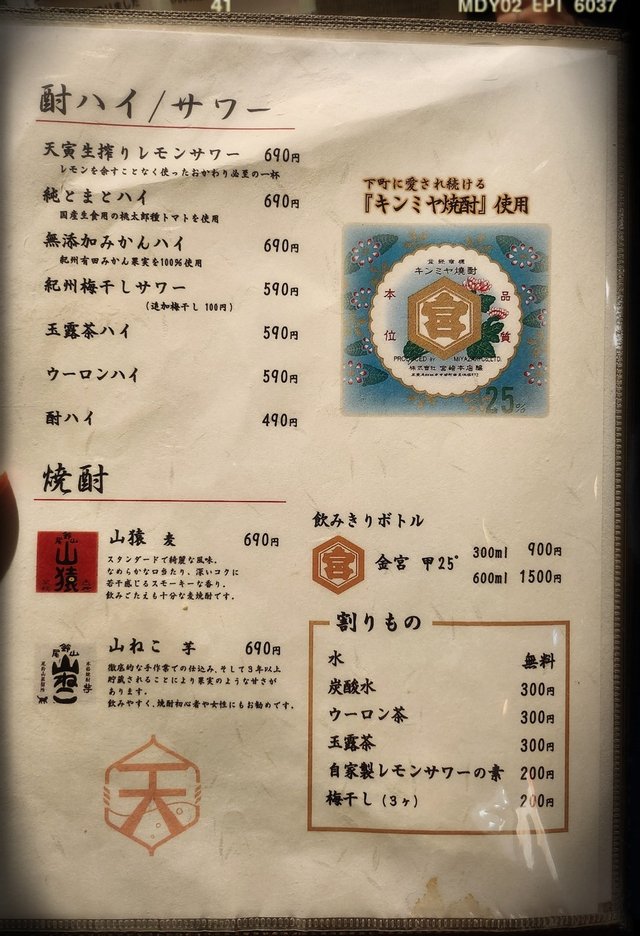 41
MDY02 EPI 6037
酎ハイ/サワー
天寅生搾りレモンサワー 690円
レモンを余すことなく使ったおかわり必至の一杯
純とまとハイ 690円
国産生食用の桃太郎種トマトを使用
無添加みかんハイ 690円
紀州有田みかん果実を100%使用
紀州梅干しサワー 590円
(追加梅干し 100円)
玉露茶ハイ 590円
ウーロンハイ 590円
酎ハイ 490円
下町に愛され続ける
『キンミヤ焼酎』使用
登録商標
キンミヤ焼酎
本 品
宮
位 質
PRODUCED by MIYAZAKI CO.,LTD.
株式會社 宮﨑本店釀
25%
焼酎
尾鈴山
山猿
山猿 麦 690円
スタンダードで綺麗な風味。
なめらかな口当たり、深いコクに
若干感じるスモーキーな香り。
飲みごたえも十分な麦焼酎です。
尾鈴山
山ねこ
本格焼酎 芋
山ねこ 芋 690円
徹底的な手作業での仕込み、そして3年以上
貯蔵されることにより果実のような甘さが
あります。
飲みやすく、焼酎初心者や女性にもお勧めです。
天
飲みきりボトル
宮
金宮 甲25°
300ml 900円
600ml 1500円
割りもの
水 無料
炭酸水 300円
ウーロン茶 300円
玉露茶 300円
自家製レモンサワーの素 200円
梅干し(3ヶ) 200円